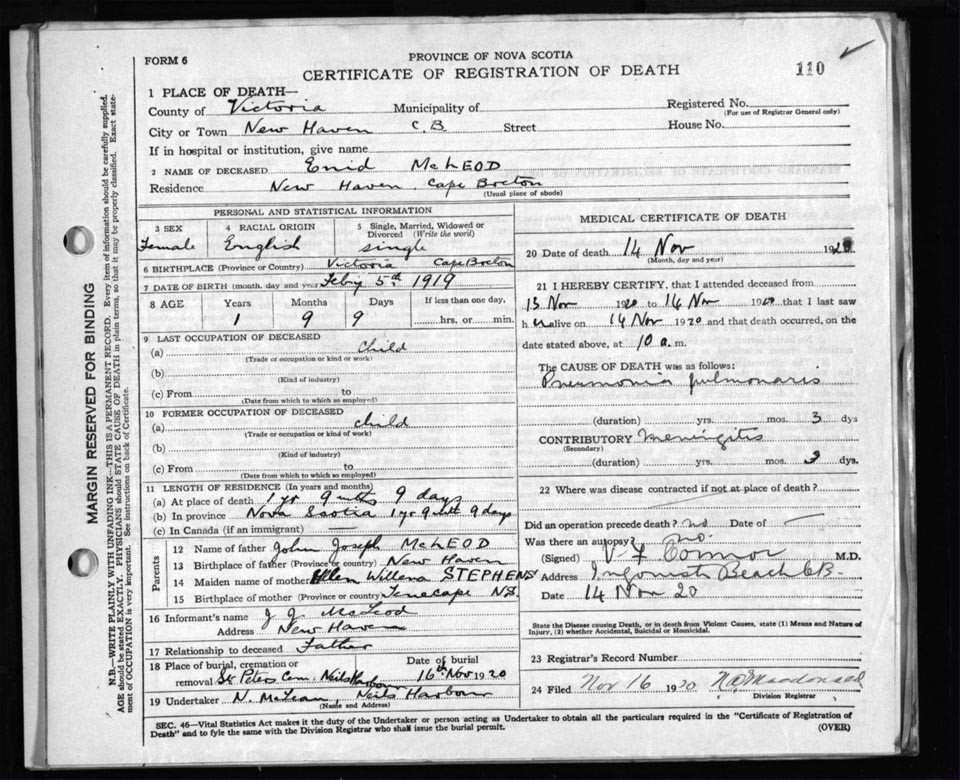 FORM 6
PROVINCE OF NOVA SCOTIA
CERTIFICATE OF REGISTRATION OF DEATH
110
1 PLACE OF DEATH—
County of Victoria Municipality of Registered No.
(For use of Registrar General only)
City or Town New Haven C B Street House No.
If in hospital or institution, give name
2 NAME OF DECEASED Enid McLEOD
Residence New Haven, Cape Breton
(Usual place of abode)
MARGIN RESERVED FOR BINDING
N.B.—WRITE PLAINLY WITH UNFADING INK—THIS IS A PERMANENT RECORD. Every item of information should be carefully supplied.
AGE should be stated EXACTLY. PHYSICIANS should STATE CAUSE OF DEATH in plain terms, so that it may be properly classified. Exact state-
ment of OCCUPATION is very important. See instructions on back of Certificate.
PERSONAL AND STATISTICAL INFORMATION
3 SEX 4 RACIAL ORIGIN 5 Single, Married, Widowed or
Divorced (Write the word)
Female English single
6 BIRTHPLACE (Province or Country) Victoria Cape Breton
7 DATE OF BIRTH (month, day and year) Feb'y 5th 1919
8 AGE Years Months Days If less than one day,
1 9 9 hrs. or min.
9 LAST OCCUPATION OF DECEASED
(a) child
(Trade or occupation or kind of work)
(b)
(Kind of industry)
(c) From to
(Date from which to which so employed)
10 FORMER OCCUPATION OF DECEASED
(a) child
(Trade or occupation or kind of work)
(b)
(Kind of industry)
(c) From to
(Date from which to which so employed)
11 LENGTH OF RESIDENCE (In years and months)
(a) At place of death 1 yr 9 mths 9 days
(b) In province Nova Scotia 1 yr 9 mth 9 days
(c) In Canada (if an immigrant)
Parents
12 Name of father John Joseph McLEOD
13 Birthplace of father (Province or country) New Haven
14 Maiden name of mother Ellen Willena STEPHENS
15 Birthplace of mother (Province or country) Tenecape N.S.
16 Informant's name J J McLeod
Address New Haven
17 Relationship to deceased Father
18 Place of burial, cremation or Date of burial
removal St Peters Cem. Neils Harbour 16th Nov 1920
19 Undertaker N. McLean Neils Harbour
(Name and Address)
MEDICAL CERTIFICATE OF DEATH
20 Date of death 14 Nov 1920
(Month, day and year)
21 I HEREBY CERTIFY, that I attended deceased from
13 Nov 1920 to 14 Nov 1920 that I last saw
h er alive on 14 Nov 1920 and that death occurred, on the
date stated above, at 10 a. m.
The CAUSE OF DEATH was as follows:
Pneumonia pulmonaris
(duration) yrs. mos. 3 dys
CONTRIBUTORY Meningitis
(Secondary)
(duration) yrs. mos. 3 dys.
22 Where was disease contracted if not at place of death?
Did an operation precede death? no Date of
Was there an autopsy? no.
(Signed) Connor M.D.
Address Ingonish Beach CB-
Date 14 Nov 20
State the Disease causing Death, or in death from Violent Causes, state (1) Means and Nature of
Injury, (2) whether Accidental, Suicidal or Homicidal.
23 Registrar's Record Number
24 Filed Nov 16 1920 Macdonald
Division Registrar
SEC. 46—Vital Statistics Act makes it the duty of the Undertaker or person acting as Undertaker to obtain all the particulars required in the "Certificate of Registration of
Death" and to fyle the same with the Division Registrar who shall issue the burial permit.
(OVER)